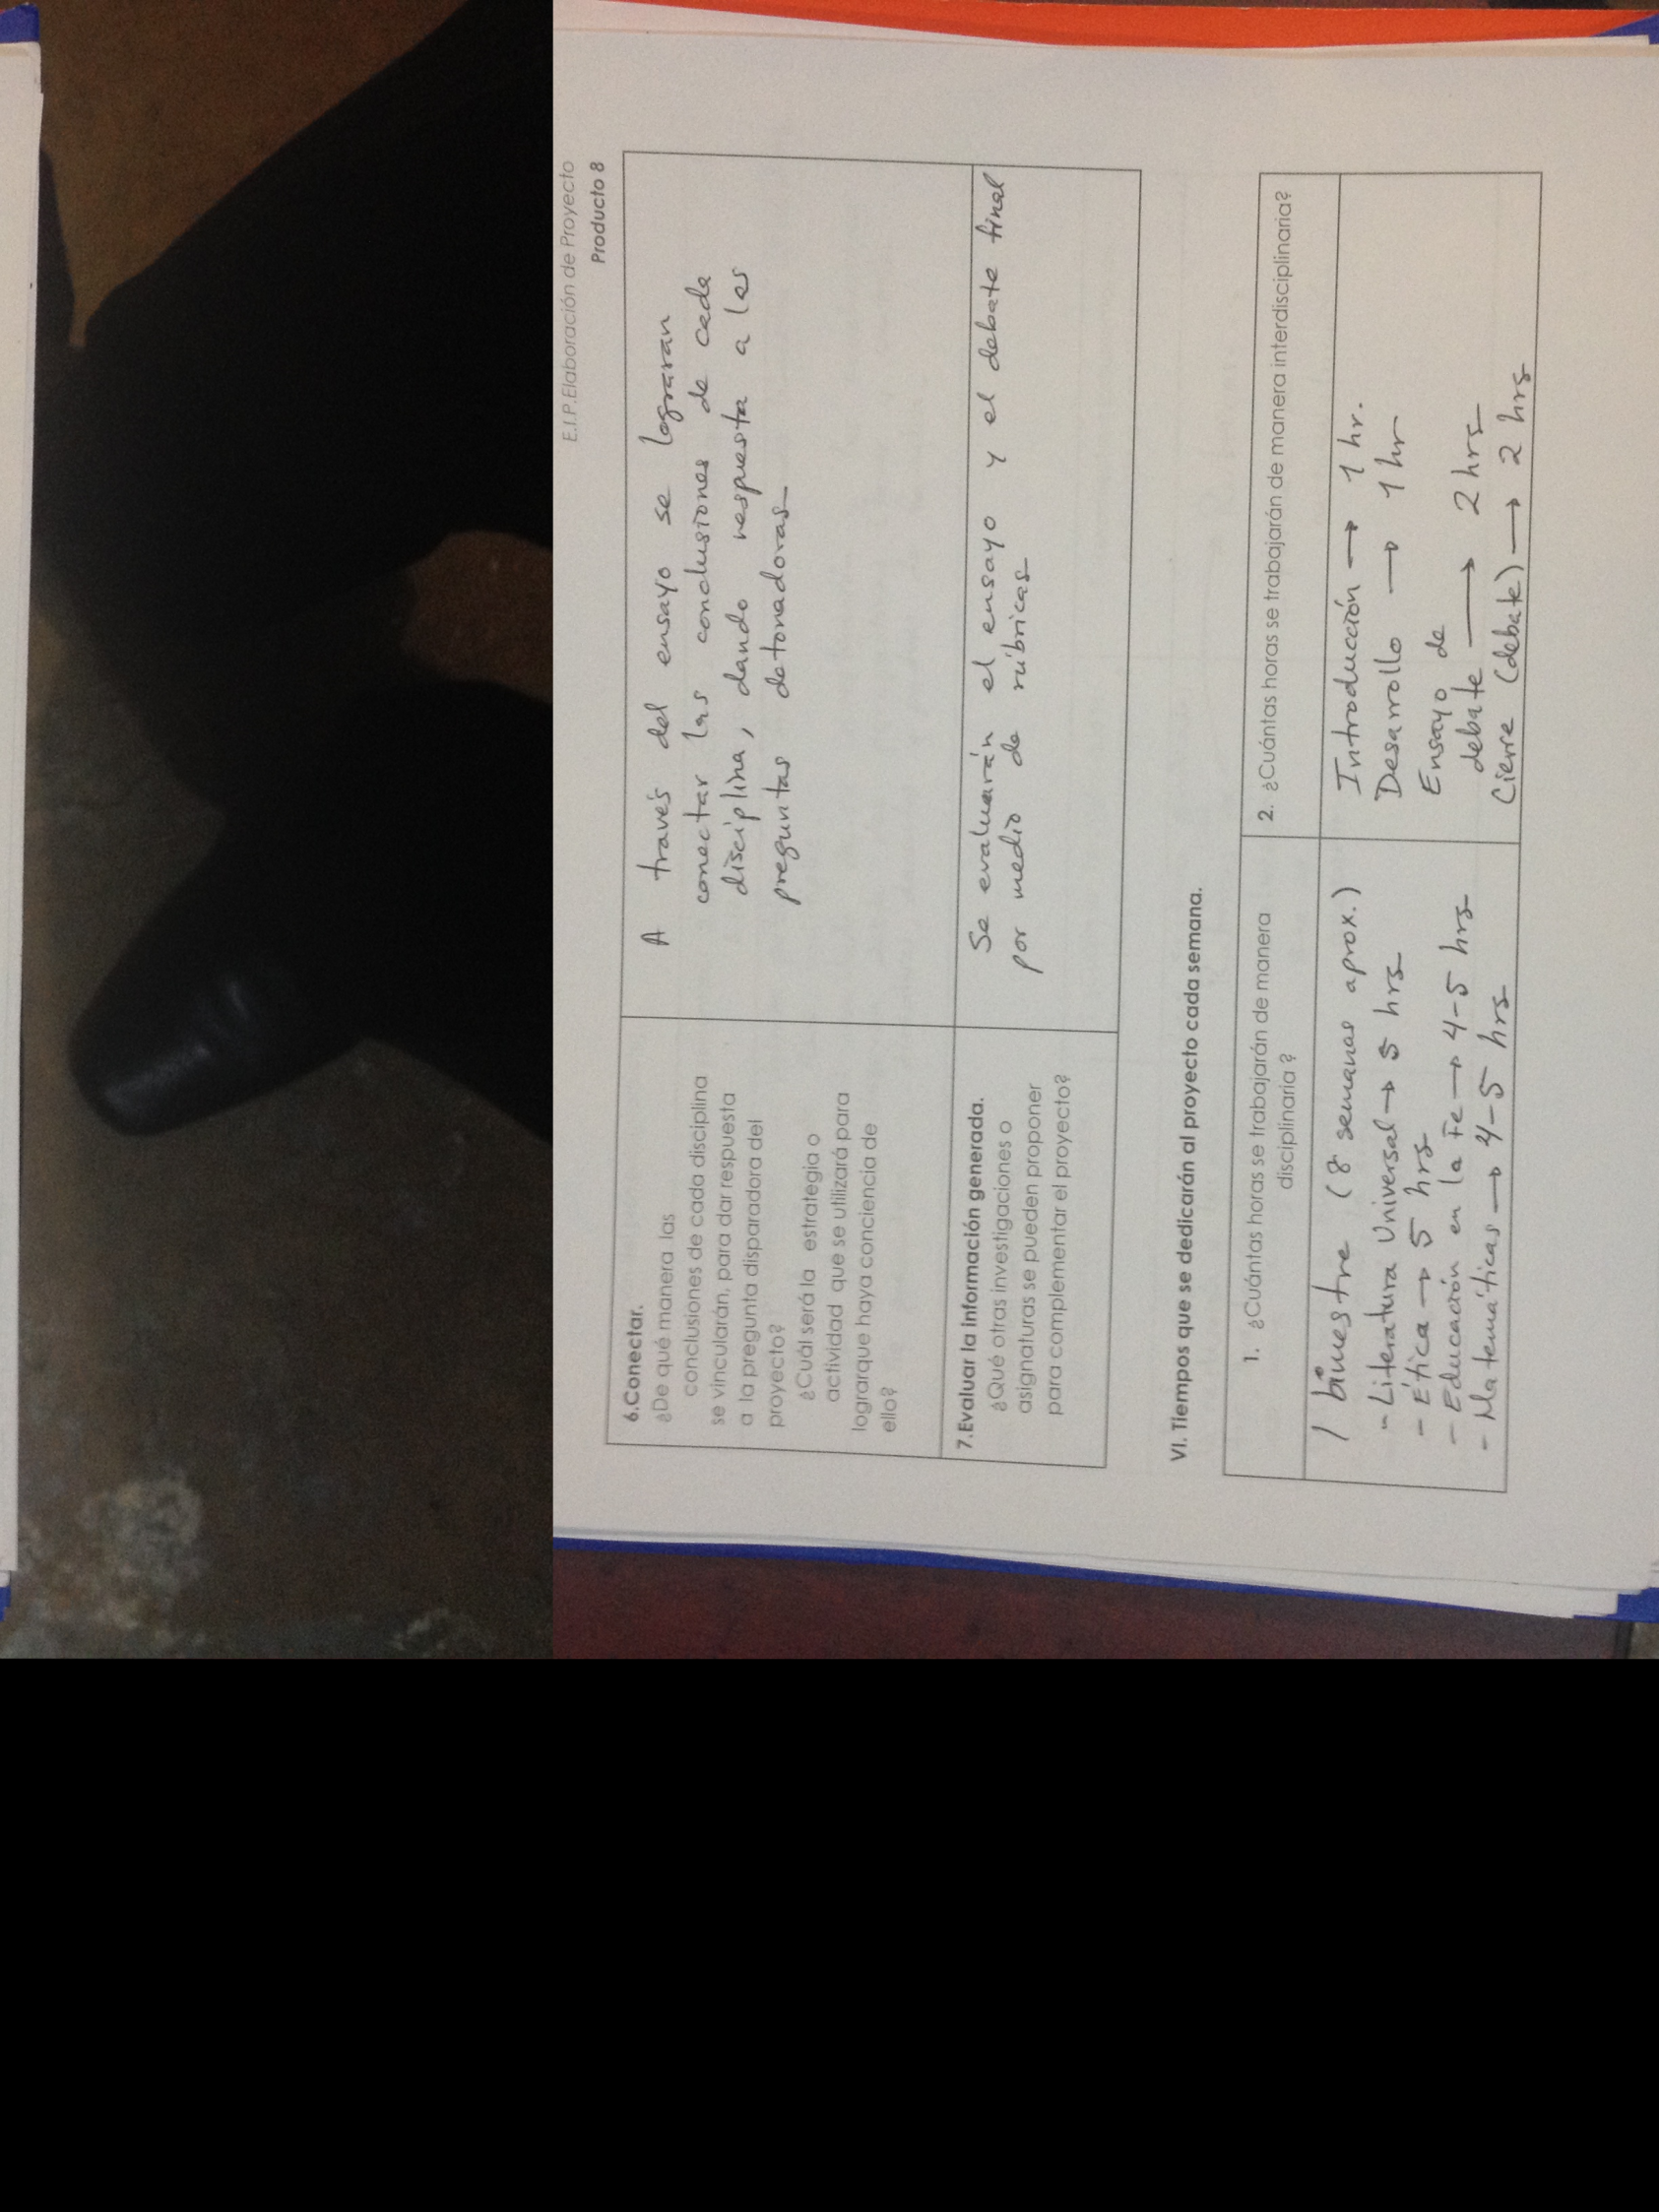 E.I.P.Elaboración de Proyecto
Producto 8
6.Conectar.
¿De qué manera las
conclusiones de cada disciplina
se vincularán, para dar respuesta
a la pregunta disparadora del
proyecto?
¿Cuál será la estrategia o
actividad que se utilizará para
lograrque haya conciencia de
ello?
A través del ensayo se lograran
conectar las conclusiones de cada
disciplina, dando respuesta a las
preguntas detonadoras
7.Evaluar la información generada.
¿Qué otras investigaciones o
asignaturas se pueden proponer
para complementar el proyecto?
Se evaluarán el ensayo y el debate final
por medio de rúbricas
VI. Tiempos que se dedicarán al proyecto cada semana.
1. ¿Cuántas horas se trabajarán de manera
disciplinaria ?
1 bimestre (8 semanas aprox.)
- Literatura Universal → 5 hrs
- Ética → 5 hrs
- Educación en la Fe → 4-5 hrs
- Matemáticas → 4-5 hrs
2. ¿Cuántas horas se trabajarán de manera interdisciplinaria?
Introducción → 1 hr.
Desarrollo → 1 hr
Ensayo de
debate → 2 hrs
Cierre (debate) → 2 hrs